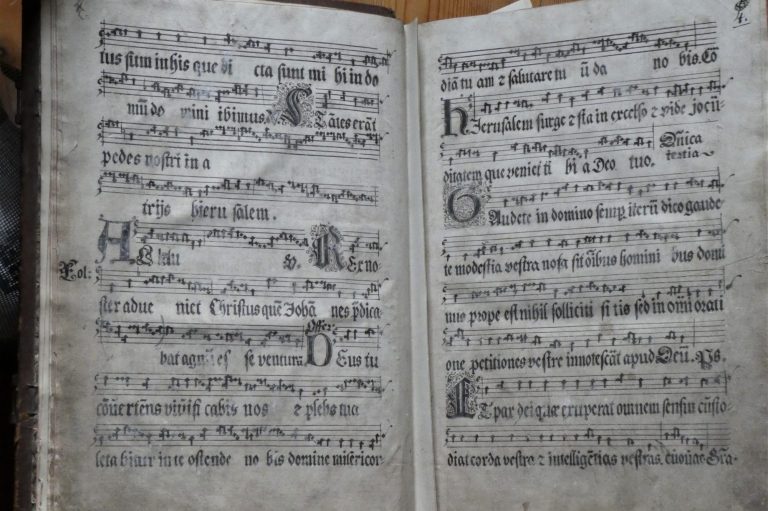 tus sum in his que di cta sunt mi hi in do
mũ do mini ibimus. Stãtes erãt
pedes vostri in a
trijs hieru salem.
Allelu v. Rex no
Fol:
ster adue niet Christus quẽ Johã nes p̃dica
Offer.
bat agnũ es se venturũ Deus tu
cõuertens viuifi cabis nos ⁊ plebs ma
leta bitur in te ostende no bis domine misericor
4.
diã tu am ⁊ salutare tu ũ da no bis. Cõ
Hierusalem surge ⁊ sta in excelso ⁊ vide jocũ
Dñica
tertia
ditatem que veniet ti bi a Deo tuo.
Gaudete in domino semp̱ iterũ dico gaude
te modestia vestra nota sit õibus homini bus domi
nus prope est nihil solliciti si tis sed in om̃i orati
one petitiones vestre innotescãt apud Deũ. Ps.
Et pax dei quæ exuperat omnem sensũ custo-
diat corda vestra ⁊ intelligẽtias vestras. euouae. Gra.